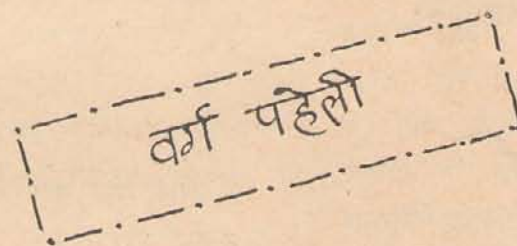 वर्ग पहेली